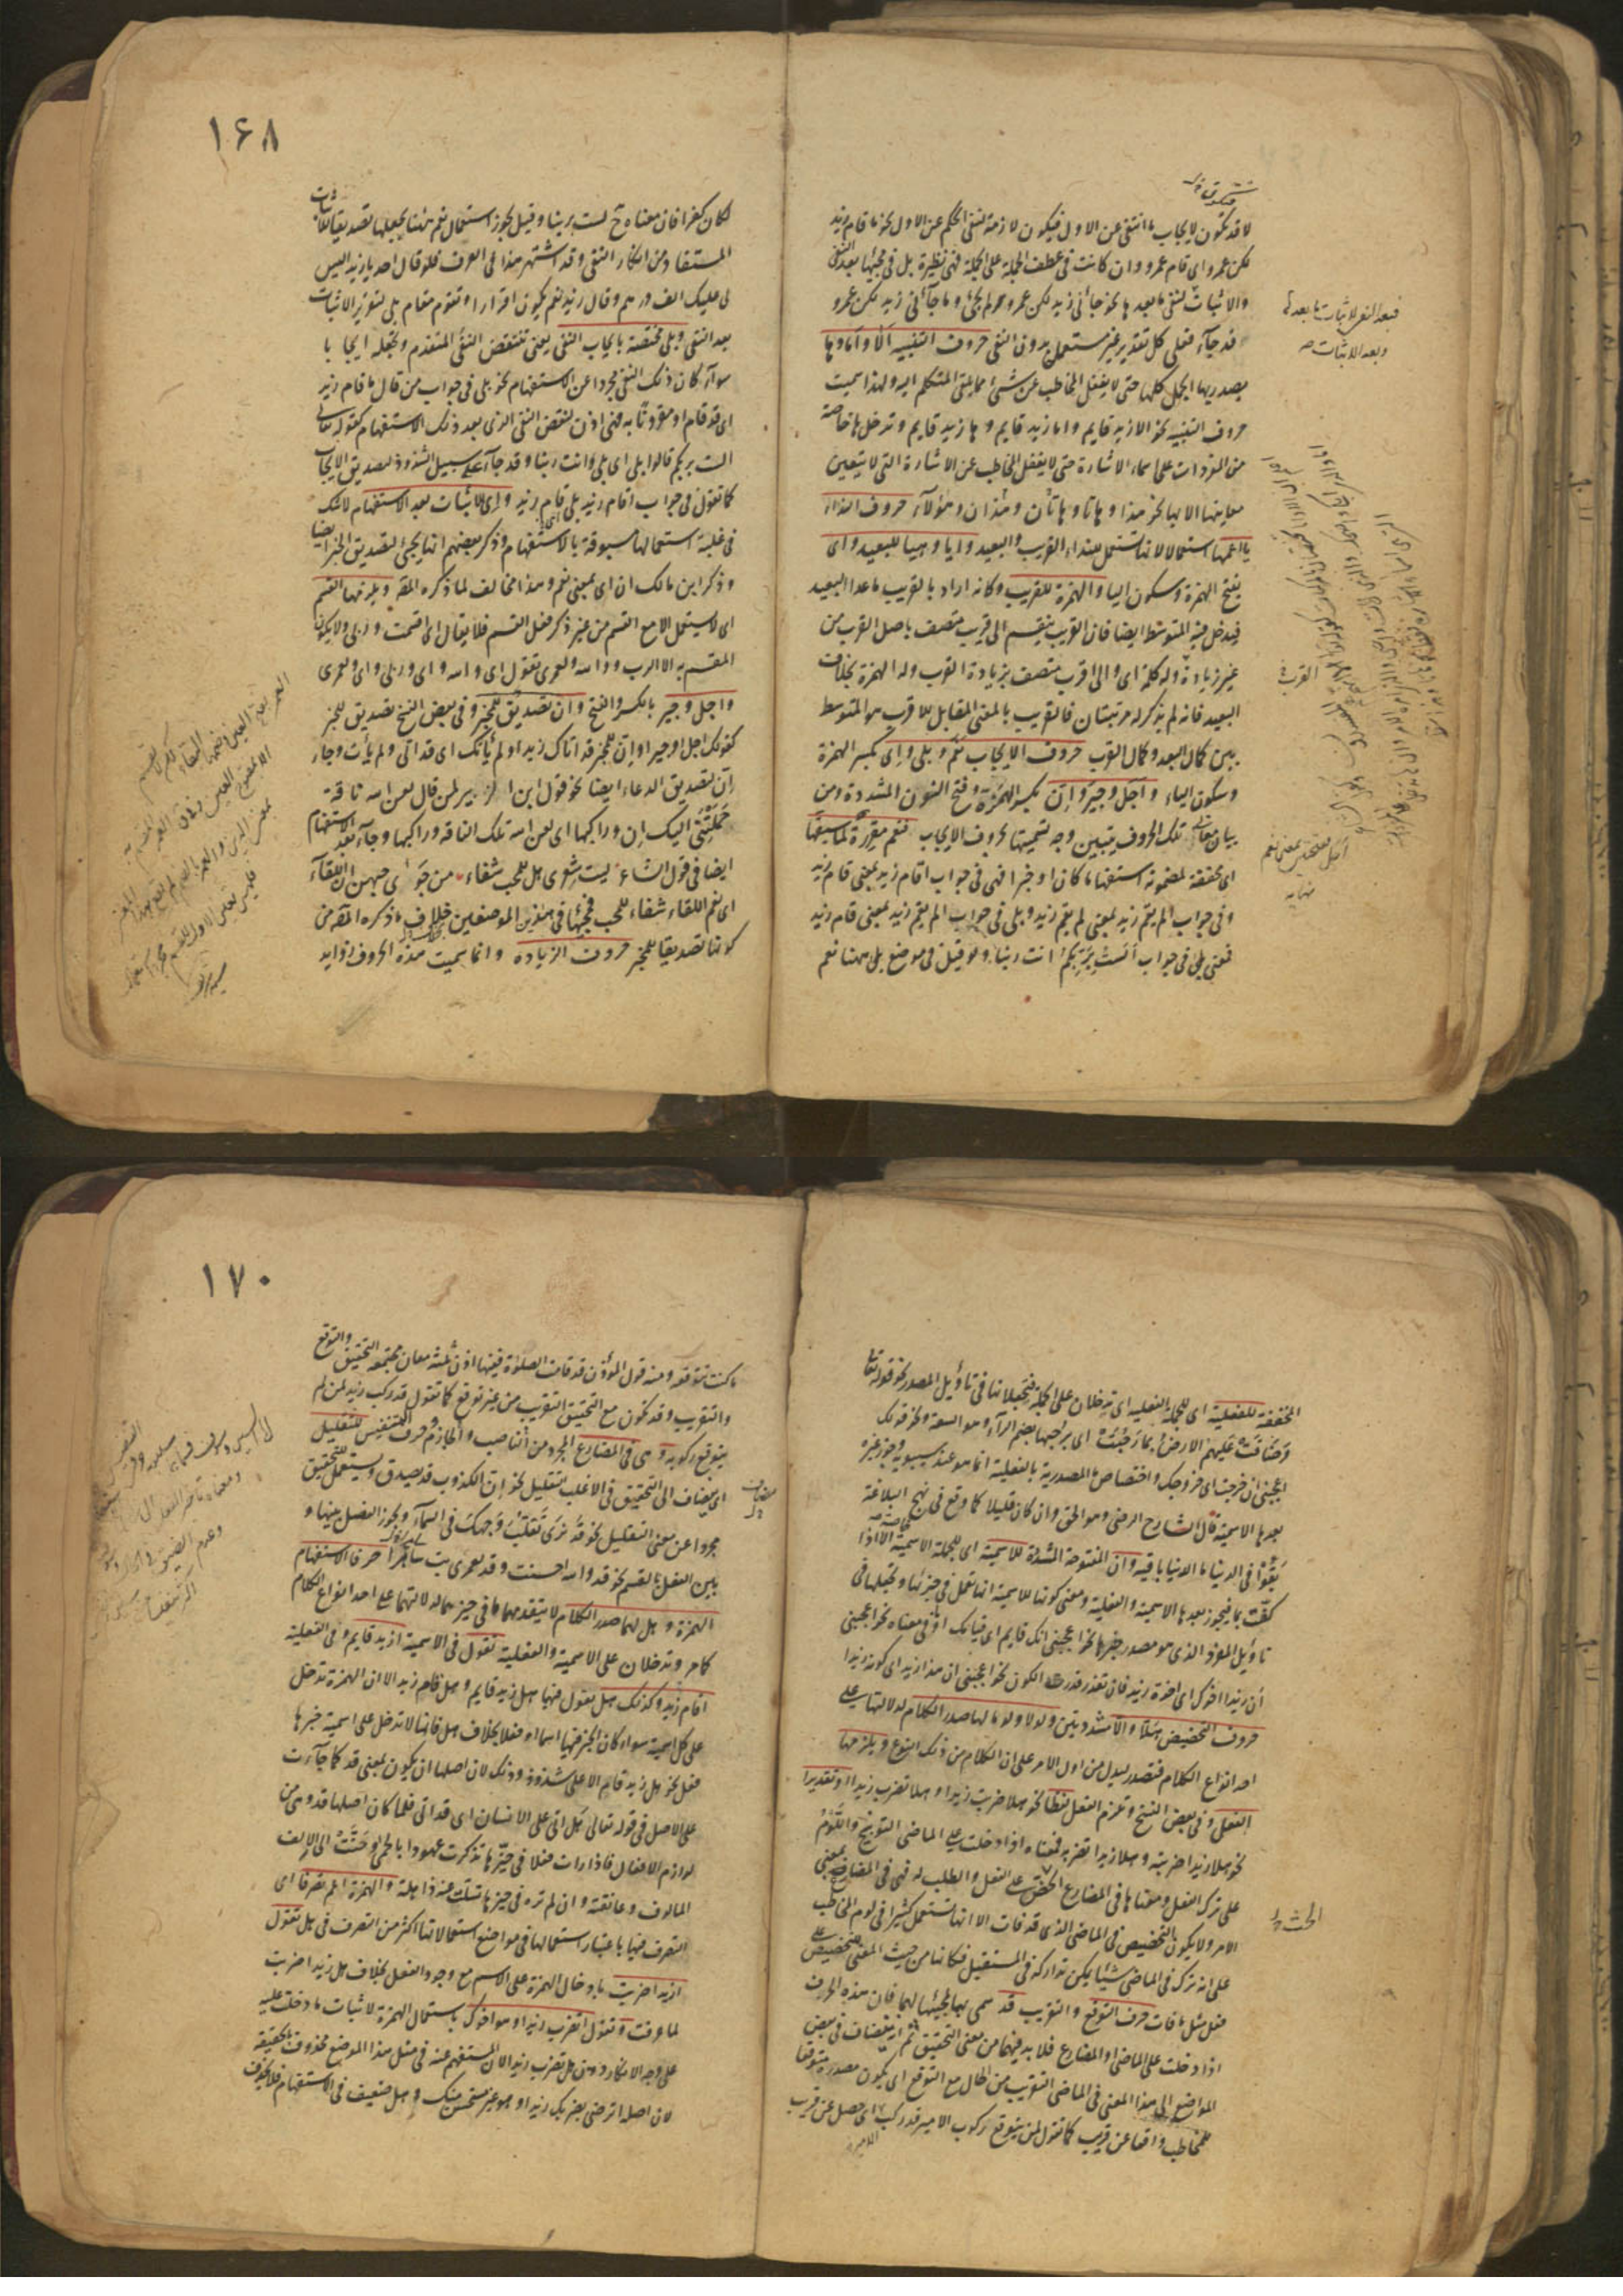 لا قد تكون لايجاب ما انتفى عن الاول فيكون لازمة لنفى الحكم عن الاول نحو ما قام زيد
لكن عمرو اى قام عمرو وان كانت فى عطف الجملة على الجملة فهى نظيرة بل فى مجيئها بعد النفى
والاثبات لنفى ما بعدها نحو جائنى زيد لكن عمرو لم يجئ وما جآئنى زيد لكن عمرو
قد جآء فعلى كل تقدير غير مستعمل بدون النفى حروف التنبيه الا واما وها
يصدر بها الجمل كلها حتى لا يغفل المخاطب عن شئ مما يلقى المتكلم اليه ولهذا سميت
حروف التنبيه نحو الا زيد قايم واما زيد قايم وها زيد قايم وتدخل ها خاصة
من المفردات على اسماء الاشارة حتى لا يغفل المخاطب عن الاشارة التى لا يتعين
معانيها الا بها نحو هذا وهاتا وهاتان وهذان وهؤلآء حروف النداء
يا اعمها استعمالا لانها تستعمل لنداء القريب والبعيد وايا وهيا للبعيد واى
بفتح الهمزة وسكون الياء والهمزة للقريب وكانه اراد بالقريب ما عدا البعيد
فيدخل فيه المتوسط ايضا فان القريب ينقسم الى قريب متصف باصل القرب من
غير زيادة وله كلمة اى والى اقرب متصف بزيادة القرب وله الهمزة بخلاف
البعيد فانه لم يذكر له مرتبتان فالقريب بالمعنى المقابل للاقرب هو المتوسط
بين كمال البعد وكمال القرب حروف الايجاب نعم وبلى واى بكسر الهمزة
وسكون الياء واجل وجير وان بكسر الهمزة وفتح النون المشددة ومن
بيان معانى تلك الحروف يتبين وجه تسميتها بحروف الايجاب فنعم مقررة لما سبقها
اى محققة لمضمونه استفهاما كان او خبرا فهى فى جواب اقام زيد بمعنى قام زيد
وفى جواب الم يقم زيد بمعنى لم يقم زيد وبلى فى جواب الم يقم زيد بمعنى قام زيد
فمعنى بلى فى جواب الست بربكم انت ربنا ولو قيل فى موضع بلى ههنا نعم
فبعد النفى لاثبات ما بعدها
وبعد الاثبات
القرب
١۶٨
لكان كفرا فان معناه ح لست بربنا وقيل يجوز استعمال نعم ههنا بجعلها تصديقا للاثبات
المستفاد من انكار النفى وقد اشتهر هذا فى العرف فلو قال احد يا زيد اليس
لى عليك الف درهم وقال زيد نعم يكون اقرارا وتقوم مقام بلى لتقرير الاثبات
بعد النفى وبلى مختصة بايجاب النفى يعنى تنقض النفى المتقدم وتجعله ايجابا
سوآء كان ذلك النفى مجردا عن الاستفهام نحو بلى فى جواب من قال ما قام زيد
اى قد قام او مقرونا به فهى اذن لنقض النفى الذى بعد ذلك الاستفهام كقوله تعالى
الست بربكم قالوا بلى اى بلى انت ربنا وقد جآء على سبيل الشذوذ لتصديق الايجاب
كما تقول فى جواب اقام زيد بلى قام زيد واى للاثبات بعد الاستفهام لا شك
فى غلبة استعمالها مسبوقة بالاستفهام وذكر بعضهم انها تجئ لتصديق الخبر ايضا
وذكر ابن مالك ان اى بمعنى نعم وهذا مخالف لما ذكره المص ويلزمها القسم
اى لا يستعمل الا مع القسم من غير ذكر فعل القسم فلا يقال اى اقسمت وربى ولا يكون
المقسم به الا الرب والله ولعمرى تقول اى والله واى وربى واى ولعمرى
واجل وجير بالكسر والفتح وان تصديق للخبر وفى بعض النسخ تصديق للخبر
كقولك اجل او جير او ان للخبر قد اتاك زيد او لم يأتك اى قد اتى ولم يأت وجاء
ان لتصديق الدعاء ايضا نحو قول ابن الزبير لمن قال لعن الله ناقة
حملتنى اليك ان وراكبها اى لعن الله تلك الناقة وراكبها وجآء بعد الاستفهام
ايضا فى قول الشاعر ليت شعرى هل للمحب شفاء من جوى حبهن ان اللقآء
اى نعم اللقاء شفاء للمحب فمجيئها فى هذين الموضعين خلاف ما ذكره المص من
كونها تصديقا للخبر حروف الزيادة وانما سميت هذه الحروف زوايد
المخففة للفعلية اى للجملة الفعلية اى تدخلان على الجملة فتجعلانها فى تأويل المصدر نحو قوله تعالى
وضاقت عليهم الارض بما رحبت اى برحبها بضم الرآء وهو السعة ونحو قولك
اعجبنى ان خرجت اى خروجك واختصاص ما المصدرية بالفعلية انما هو عند سيبويه وجوز غيره
بعدها الاسمية قال الشارح الرضى وهو الحق وان كان قليلا كما وقع فى نهج البلاغة
بقوا فى الدنيا ما الدنيا باقية وان المفتوحة المشددة للاسمية اى للجملة الاسمية الا اذا
كفت بما فيجوز بعدها الاسمية والفعلية ومعنى كونها للاسمية انها تعمل فى جزئيها وتجعلها فى
تاويل المفرد الذى هو مصدر خبرها نحو اعجبنى انك قايم اى قيامك او ما فى معناه نحو اعجبنى
ان زيدا اخوك اى اخوة زيد فان تعذر قدرت الكون نحو اعجبنى ان هذا زيد اى كونه زيدا
حروف التحضيض هلا والا مشددتين ولولا ولوما لها صدر الكلام لدلالتها على
احد انواع الكلام فتصدر ليدل من اول الامر على ان الكلام من ذلك النوع ويلزمها
الفعل وفى بعض النسخ وتلزم الفعل لفظا نحو هلا ضربت زيدا او هلا تضرب زيدا او تقديرا
نحو هلا زيدا ضربته وهلا زيدا تضربه فمعناه اذا دخلت على الماضى التوبيخ واللوم
على ترك الفعل ومعناها فى المضارع الحض على الفعل والطلب له فهى فى المضارع بمعنى
الامر ولا يكون التحضيض فى الماضى الذى قد فات الا انها تستعمل كثيرا فى لوم المخاطب
على انه ترك فى الماضى شيئا يمكن تداركه فى المستقبل فكانها من حيث المعنى للتحضيض على
فعل مثل ما فات حرف التوقع والتقريب قد سمى بها لمجيئها لهما فان هذه الحرف
اذا دخلت على الماضى او المضارع فلا بد فيهما من معنى التحقيق ثم انه يضاف فى بعض
المواضع الى هذا المعنى فى الماضى التقريب من الحال مع التوقع اى يكون مصدره متوقعا
للمخاطب واقعا عن قريب كما تقول لمن يتوقع ركوب الامير قد ركب اى حصل عن قريب
الامير
١٧٠
ما كنت تتوقعه ومنه قول المؤذن قد قامت الصلوة ففيها اذن ثلثة معان مجتمعة التحقيق والتوقع
والتقريب وقد تكون مع التحقيق التقريب من غير توقع كما تقول قد ركب زيد لمن لم
يتوقع ركوبه وهى فى المضارع المجرد من الناصب والجازم وحرف التنفيس للتقليل
اى يضاف الى التحقيق فى الاغلب التقليل نحو ان الكذوب قد يصدق ويستعمل للتحقيق
مجردا عن معنى التقليل نحو قد نرى تقلب وجهك فى السمآء ويجوز الفصل بينها و
بين الفعل بالقسم نحو قد والله احسنت وقد لعمرى بت ساهرا حرفا الاستفهام
الهمزة وهل لهما صدر الكلام لا يتقدمهما ما فى حيزهما لدلالتهما على احد انواع الكلام
كما مر وتدخلان على الاسمية والفعلية تقول فى الاسمية ازيد قايم وفى الفعلية
اقام زيد وكذلك هل تقول فيها هل زيد قايم وهل قام زيد الا ان الهمزة تدخل
على كل اسمية سواء كان الخبر فيها اسما او فعلا بخلاف هل فانها لا تدخل على اسمية خبرها
فعل نحو هل زيد قام الا على شذوذ وذلك لان اصلها ان يكون بمعنى قد كما جآءت
على الاصل فى قوله تعالى هل اتى على الانسان اى قد اتى فلما كان اصلها قد وهى من
لوازم الافعال فاذا رات فعلا فى حيزها تذكرت عهودا بالحمى وحنت الى الالف
المالوف وعانقته وان لم تره فى حيزها تسلت عنه ذاهلة والهمزة اعم تصرفا اى
التصرف فيها باعتبار استعمالها فى مواضع استعمالاتها اكثر من التصرف فى هل تقول
ازيدا ضربت بادخال الهمزة على الاسم مع وجود الفعل بخلاف هل زيدا ضربت
لما عرفت وتقول اتضرب زيدا وهو اخوك باستعمال الهمزة لاثبات ما دخلت عليه
على وجه الانكار دون هل تضرب زيدا لان المستفهم عنه فى مثل هذا الموضع محذوف بالحقيقة
لان اصله اترضى بضربك زيدا وهو غير مستحسن منك وهل ضعيف فى الاستفهام فلا يحذف